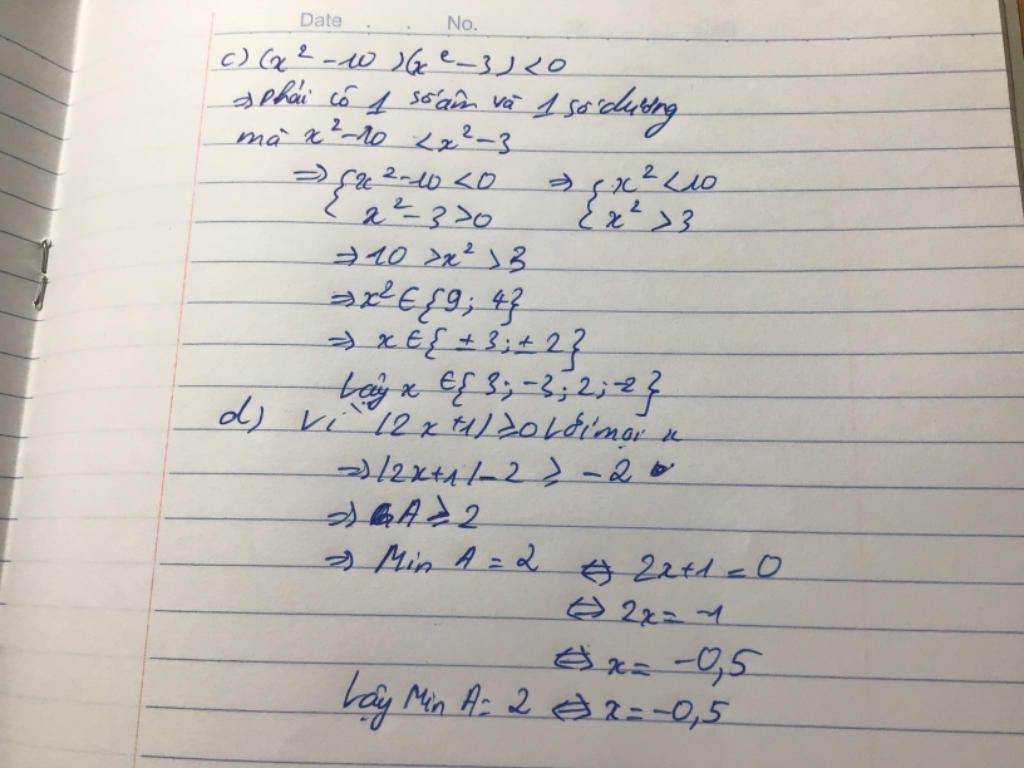 Date . . No.
c) (x² - 10)(x² - 3) < 0
⇒ phải có 1 số âm và 1 số dương
mà x² - 10 < x² - 3
⇒ { x² - 10 < 0 ⇒ { x² < 10
x² - 3 > 0 x² > 3
⇒ 10 > x² > 3
⇒ x² ∈ {9; 4}
⇒ x ∈ {±3; ±2}
Vậy x ∈ {3; -3; 2; -2}
d) Vì |2x+1| ≥ 0 với mọi x
⇒ |2x+1| - 2 ≥ -2
⇒ A ≥ 2
⇒ Min A = 2 ⇔ 2x+1 = 0
⇔ 2x = -1
⇔ x = -0,5
Vậy Min A = 2 ⇔ x = -0,5